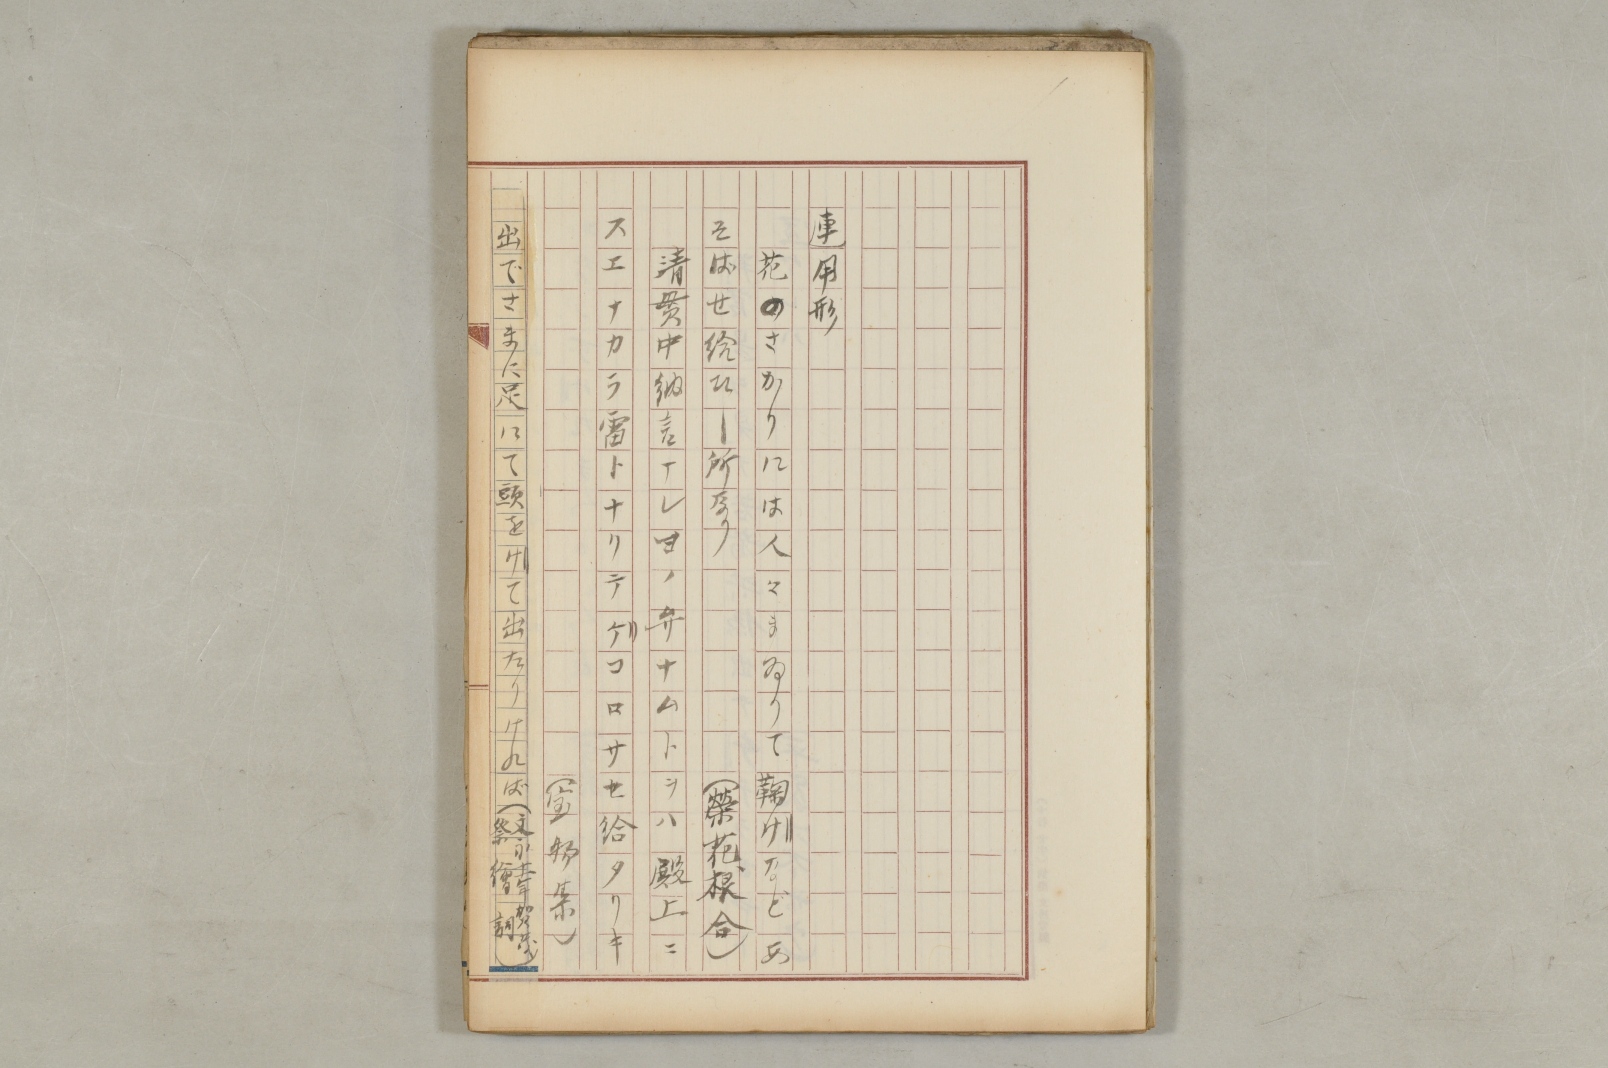 連用形
花のさかりには人々まゐりて鞠けなどあ
そばせ給ひし所なり
(榮花根合)
清貫中納言マレヨノ弁ナムトヲハ殿上ニ
スエナカラ雷トナリテケコロサセ給タリキ
(宝物集)
出でさまに足にて頭をけて出たりければ
(文永十一年賀茂
祭繪詞)